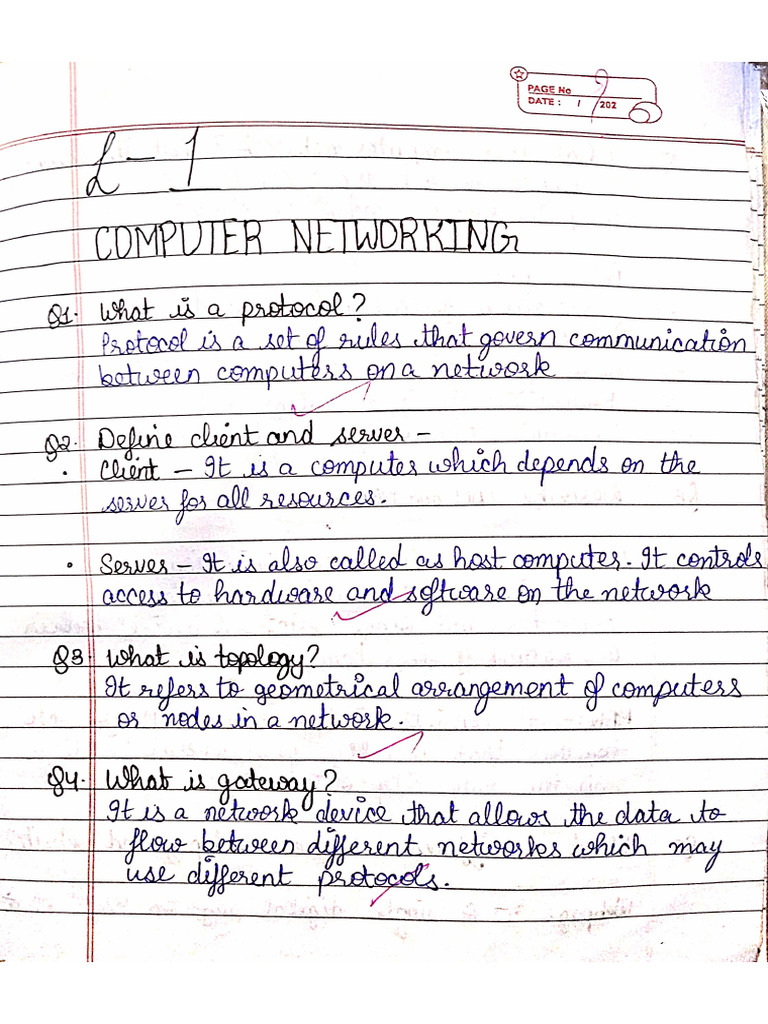 PAGE No
DATE: / /202
L-1
COMPUTER NETWORKING
Q1. What is a protocol?
Protocol is a set of rules that govern communication
between computers on a network
Q2. Define client and server -
• Client - It is a computer which depends on the
server for all resources.
• Server - It is also called as host computer. It controls
access to hardware and software on the network
Q3 What is topology?
It refers to geometrical arrangement of computers
or nodes in a network.
Q4. What is gateway?
It is a network device that allows the data to
flow between different networks which may
use different protocols.